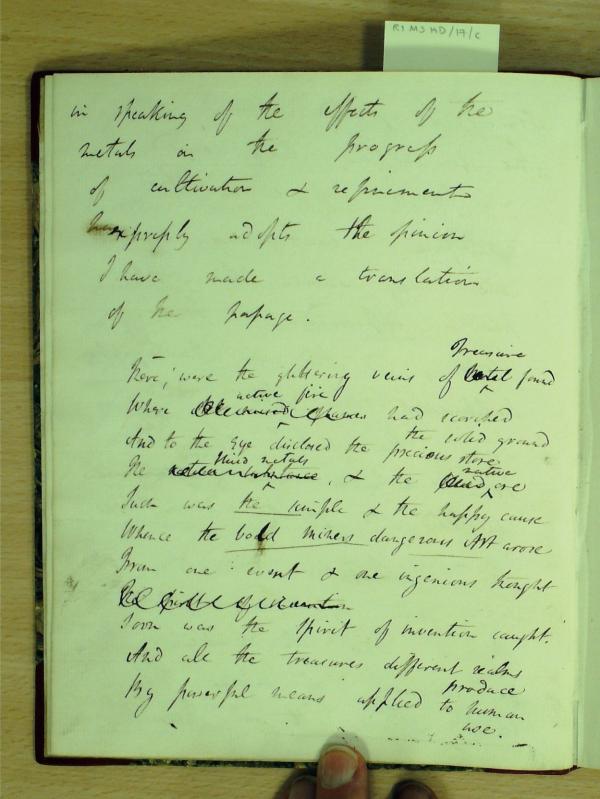 RI MS HD/14/c
in speaking of the effects of the
metals on the progress
of cultivation & refinements
expressly adopts the opinion
I have made a translation
of the passage.
Treasure
Here, were the glittering veins of found
active fire
Where had scorched the solid ground
And to the Eye disclosed the precious store
mixed metals native
The , & the ore
Such was the simple & the happy cause
Whence the bold miners dangerous Art arose
From one event & one ingenious thought
Soon was the spirit of invention caught.
And all the treasures different realms
produce
By powerful means applied to human
use.